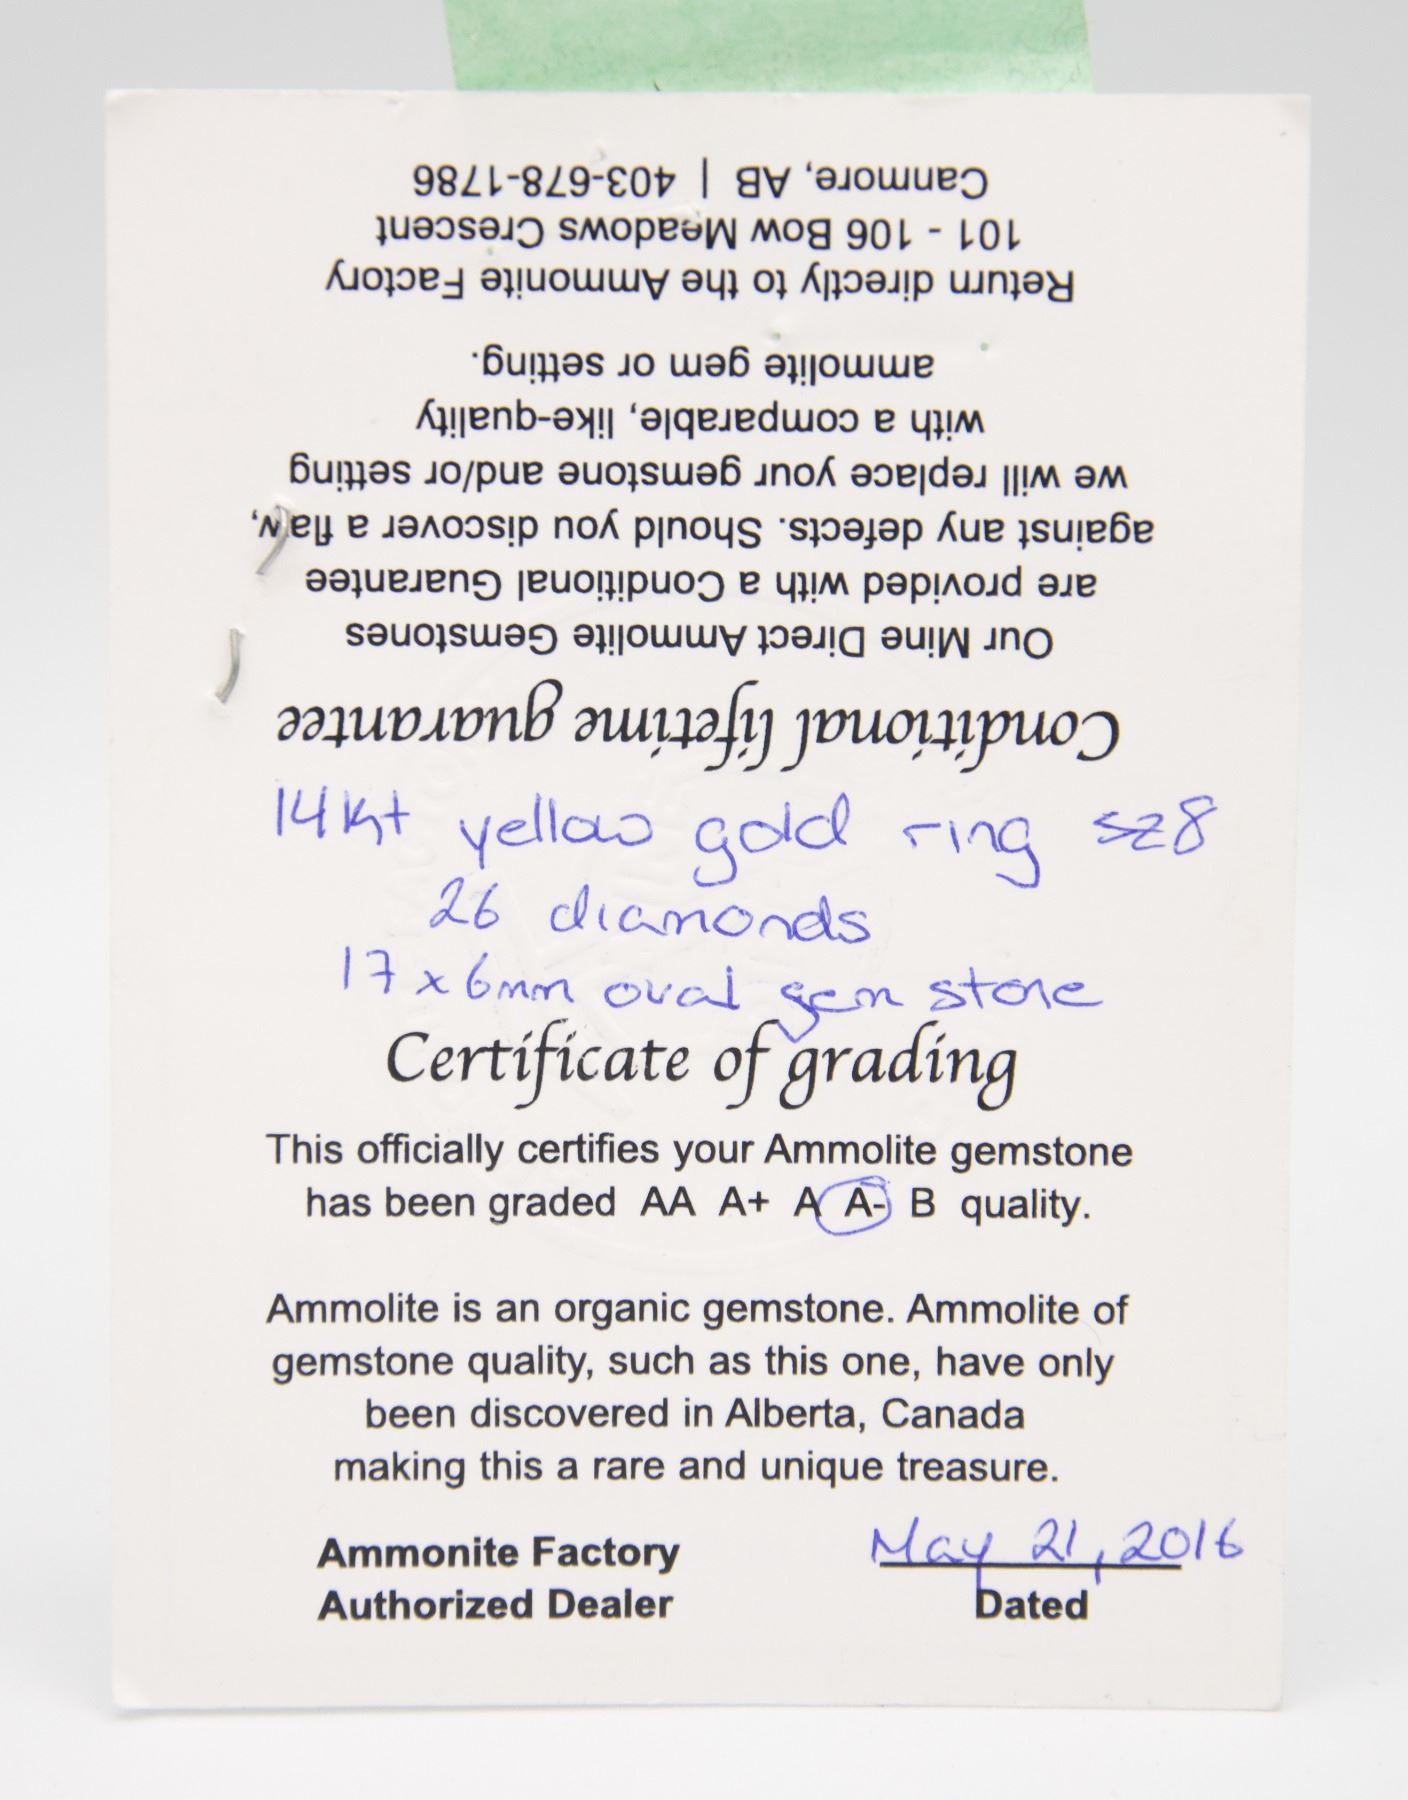 Conditional lifetime guarantee
Our Mine Direct Ammolite Gemstones
are provided with a Conditional Guarantee
against any defects. Should you discover a flaw,
we will replace your gemstone and/or setting
with a comparable, like-quality
ammolite gem or setting.
Return directly to the Ammonite Factory
101 - 106 Bow Meadows Crescent
Canmore, AB | 403-678-1786
14kt yellow gold ring sz8
26 diamonds
17x6mm oval gem stone
Certificate of grading
This officially certifies your Ammolite gemstone
has been graded AA A+ A A- B quality.
Ammolite is an organic gemstone. Ammolite of
gemstone quality, such as this one, have only
been discovered in Alberta, Canada
making this a rare and unique treasure.
Ammonite Factory
Authorized Dealer
May 21, 2016
Dated